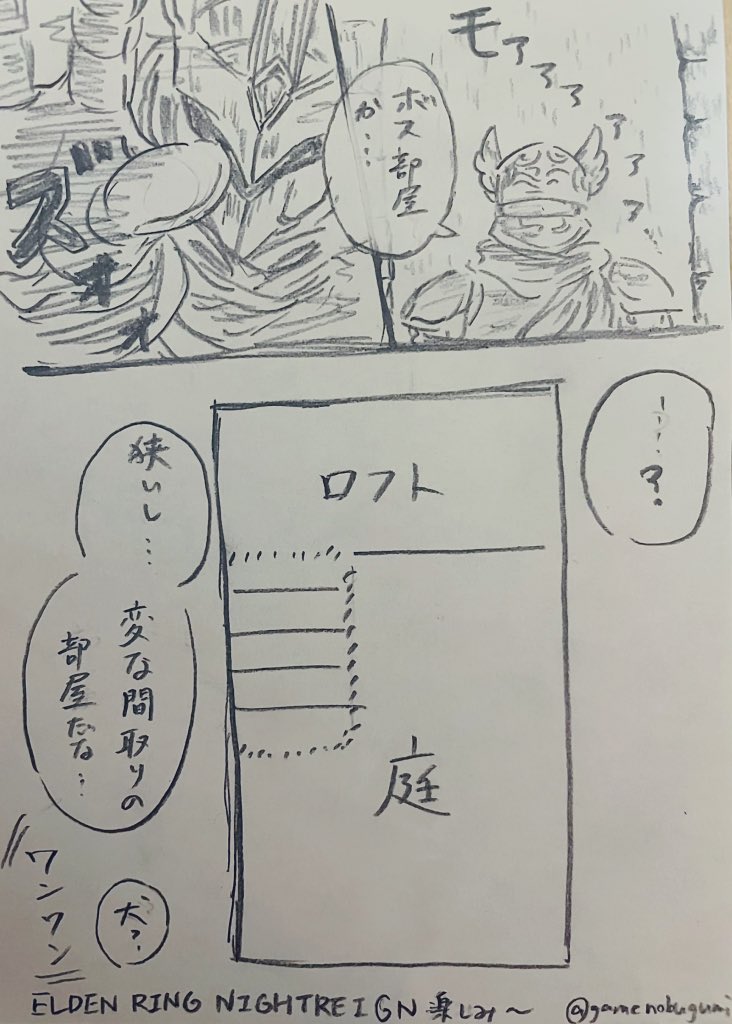 モアアアアアア…
ボス部屋
か…
ズオオオ
…?
ロフト
庭
狭いし…
変な間取りの
部屋だな…
犬?
ワンワン
ELDEN RING NIGHTREIGN 楽しみ～
@gamenobugumi